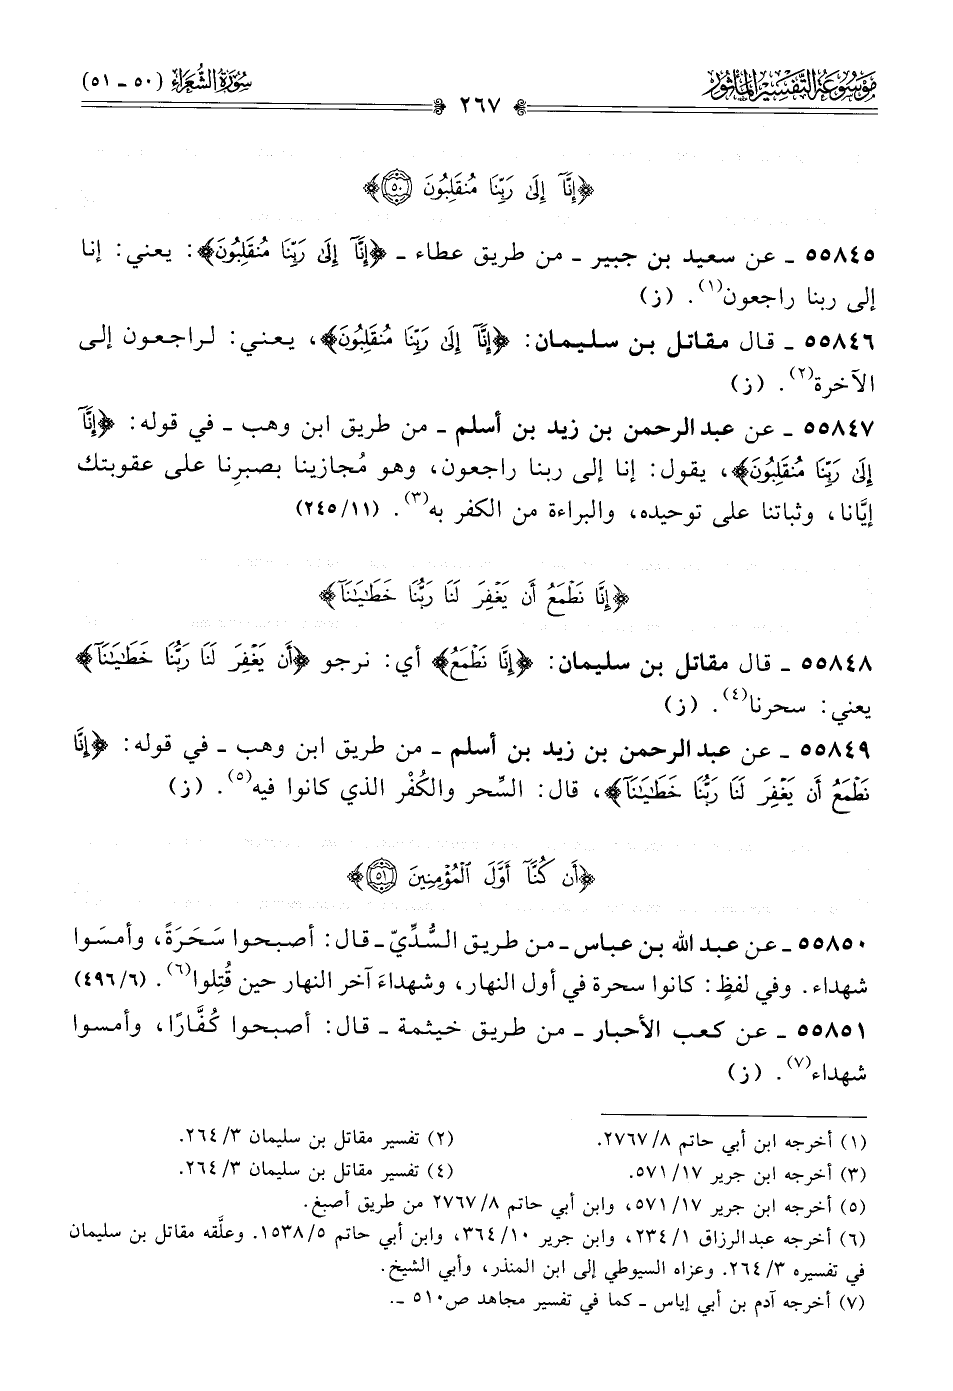 موسوعة التفسير المأثور
سورة الشعراء (٥٠ ـ ٥١)
٢٦٧
﴿إِنَّآ إِلَىٰ رَبِّنَا مُنقَلِبُونَ ٥٠﴾
٥٥٨٤٥ ـ عن سعيد بن جبير ـ من طريق عطاء ـ ﴿إِنَّآ إِلَىٰ رَبِّنَا مُنقَلِبُونَ﴾: يعني: إنا
إلى ربنا راجعون(١). (ز)
٥٥٨٤٦ ـ قال مقاتل بن سليمان: ﴿إِنَّآ إِلَىٰ رَبِّنَا مُنقَلِبُونَ﴾، يعني: لراجعون إلى
الآخرة(٢). (ز)
٥٥٨٤٧ ـ عن عبد الرحمن بن زيد بن أسلم ـ من طريق ابن وهب ـ في قوله: ﴿إِنَّآ
إِلَىٰ رَبِّنَا مُنقَلِبُونَ﴾، يقول: إنا إلى ربنا راجعون، وهو مُجازينا بصبرِنا على عقوبتك
إيَّانا، وثباتنا على توحيده، والبراءة من الكفر به(٣). (١١/٢٤٥)
﴿إِنَّا نَطْمَعُ أَن يَغْفِرَ لَنَا رَبُّنَا خَطَٰيَٰنَآ﴾
٥٥٨٤٨ ـ قال مقاتل بن سليمان: ﴿إِنَّا نَطْمَعُ﴾ أي: نرجو ﴿أَن يَغْفِرَ لَنَا رَبُّنَا خَطَٰيَٰنَآ﴾
يعني: سحرنا(٤). (ز)
٥٥٨٤٩ ـ عن عبد الرحمن بن زيد بن أسلم ـ من طريق ابن وهب ـ في قوله: ﴿إِنَّا
نَطْمَعُ أَن يَغْفِرَ لَنَا رَبُّنَا خَطَٰيَٰنَآ﴾، قال: السِّحر والكُفْر الذي كانوا فيه(٥). (ز)
﴿أَن كُنَّآ أَوَّلَ ٱلْمُؤْمِنِينَ ٥١﴾
٥٥٨٥٠ ـ عن عبد الله بن عباس ـ من طريق السُّدِّيّ ـ قال: أصبحوا سَحَرَةً، وأمسَوا
شهداء. وفي لفظٍ: كانوا سحرة في أول النهار، وشهداءَ آخر النهار حين قُتِلوا(٦). (٦/٤٩٦)
٥٥٨٥١ ـ عن كعب الأحبار ـ من طريق خيثمة ـ قال: أصبحوا كُفَّارًا، وأمسوا
شهداء(٧). (ز)
(١) أخرجه ابن أبي حاتم ٨/٢٧٦٧.
(٢) تفسير مقاتل بن سليمان ٣/٢٦٤.
(٣) أخرجه ابن جرير ١٧/٥٧١.
(٤) تفسير مقاتل بن سليمان ٣/٢٦٤.
(٥) أخرجه ابن جرير ١٧/٥٧١، وابن أبي حاتم ٨/٢٧٦٧ من طريق أصبغ.
(٦) أخرجه عبد الرزاق ١/٢٣٤، وابن جرير ١٠/٣٦٤، وابن أبي حاتم ٥/١٥٣٨. وعلَّقه مقاتل بن سليمان
في تفسيره ٣/٢٦٤. وعزاه السيوطي إلى ابن المنذر، وأبي الشيخ.
(٧) أخرجه آدم بن أبي إياس ـ كما في تفسير مجاهد ص٥١٠ ـ.